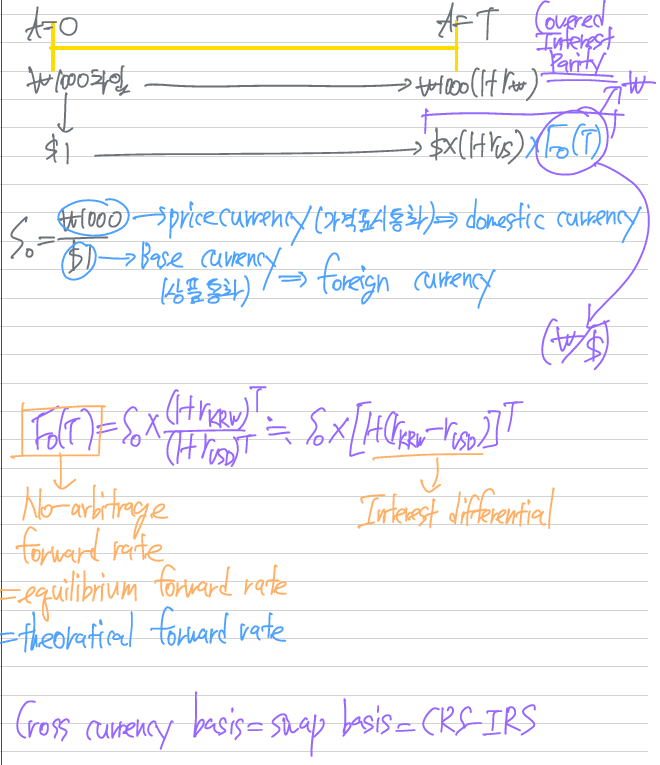 A=0 A=T Covered
Interest
Parity
₩1000라일 → ₩1000(1+r₩) ₩
↓
$1 → $×(1+rUS)×F₀(T)
S₀=₩1000/$1
₩1000→price currency(가격표시통화)⇒ domestic currency
$1→Base currency
(상품통화) ⇒ foreign currency
(₩/$)
F₀(T)=S₀×(1+rKRW)ᵀ/(1+rUSD)ᵀ≒ S₀×[1+(rKRW-rUSD)]ᵀ
No-arbitrage Interest differential
forward rate
=equilibrium forward rate
=theoratical forward rate
Cross currency basis=swap basis=CRS-IRS